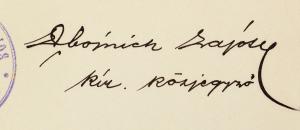 Dbojnich Lajos
kir. közjegyző